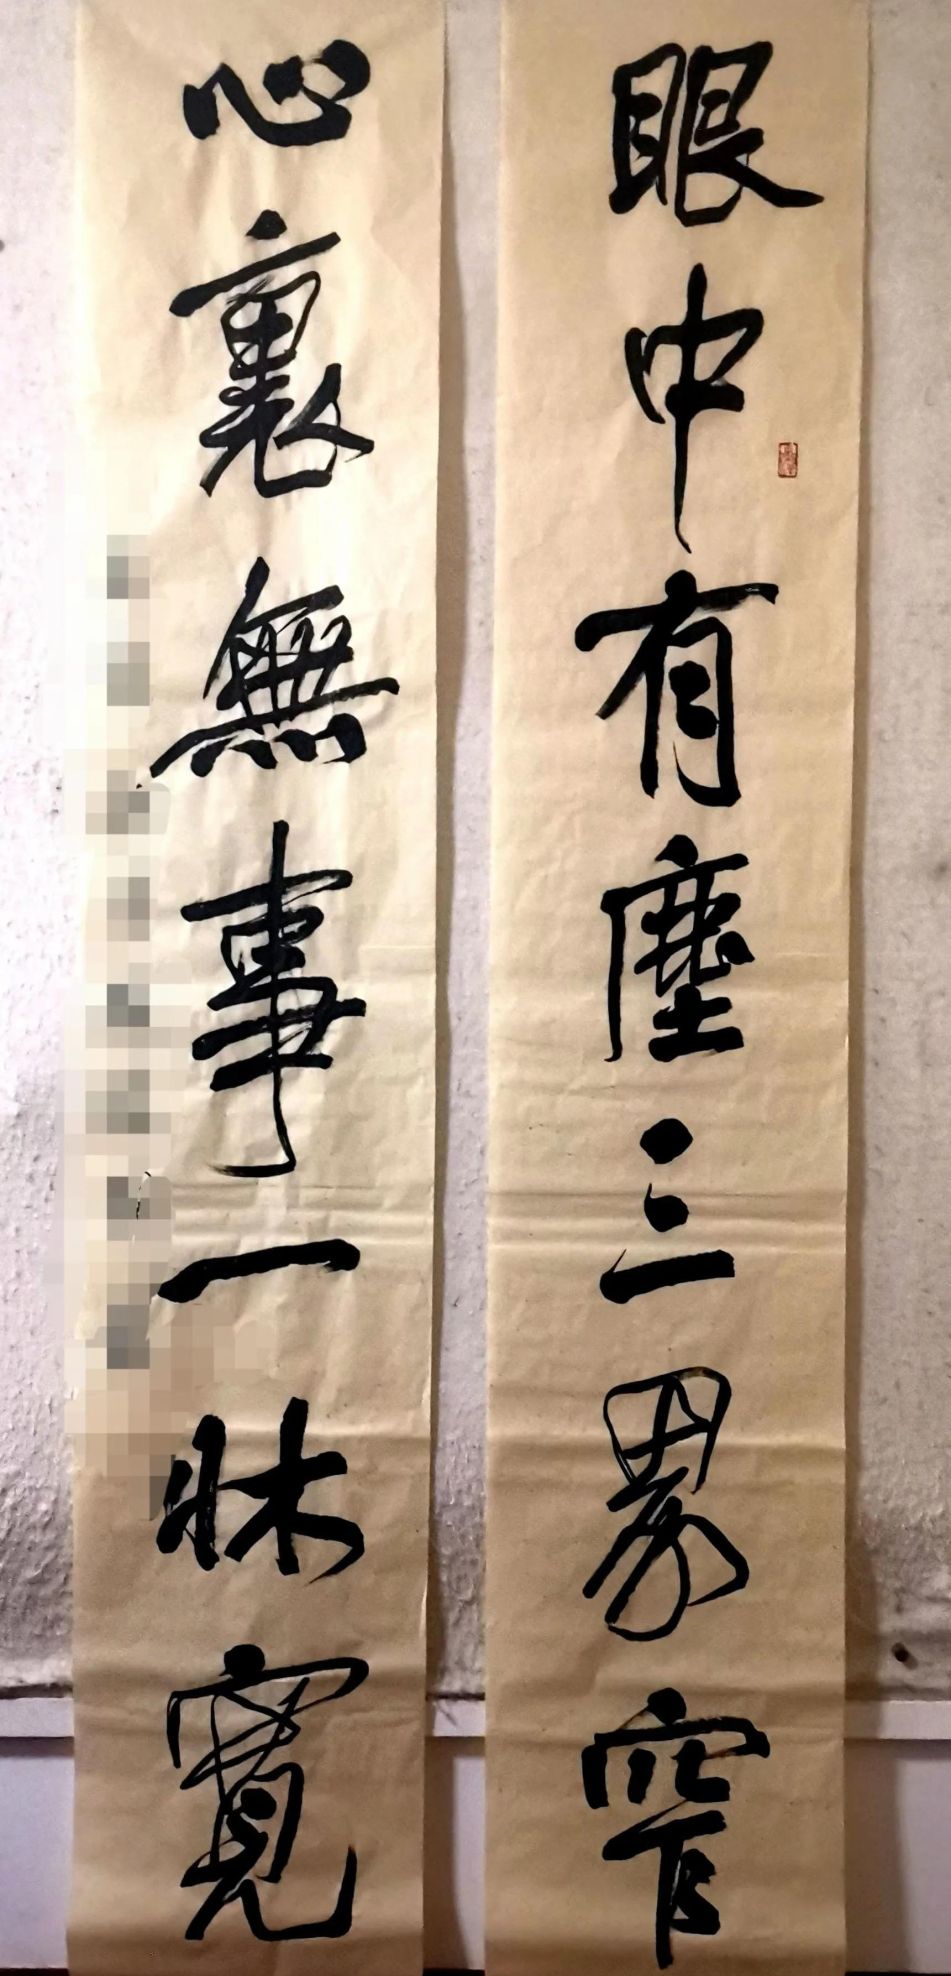 眼中有塵三界窄
心裏無事一牀寬